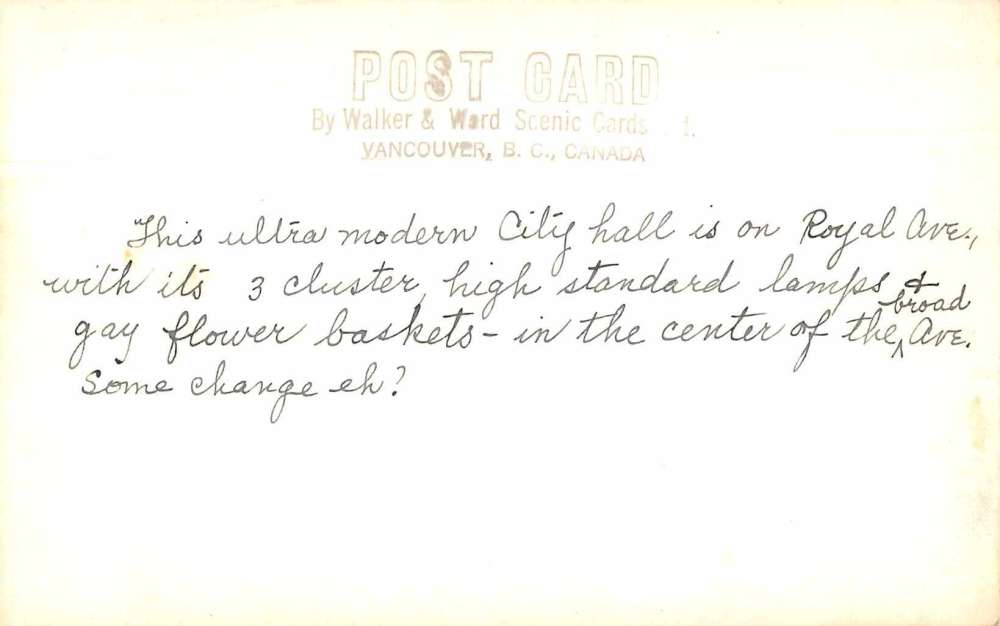 POST CARD
By Walker & Ward Scenic Cards
VANCOUVER, B. C., CANADA
This ultra modern City hall is on Royal Ave.,
with its 3 cluster, high standard lamps &
gay flower baskets - in the center of the ^broad Ave.
Some change eh?